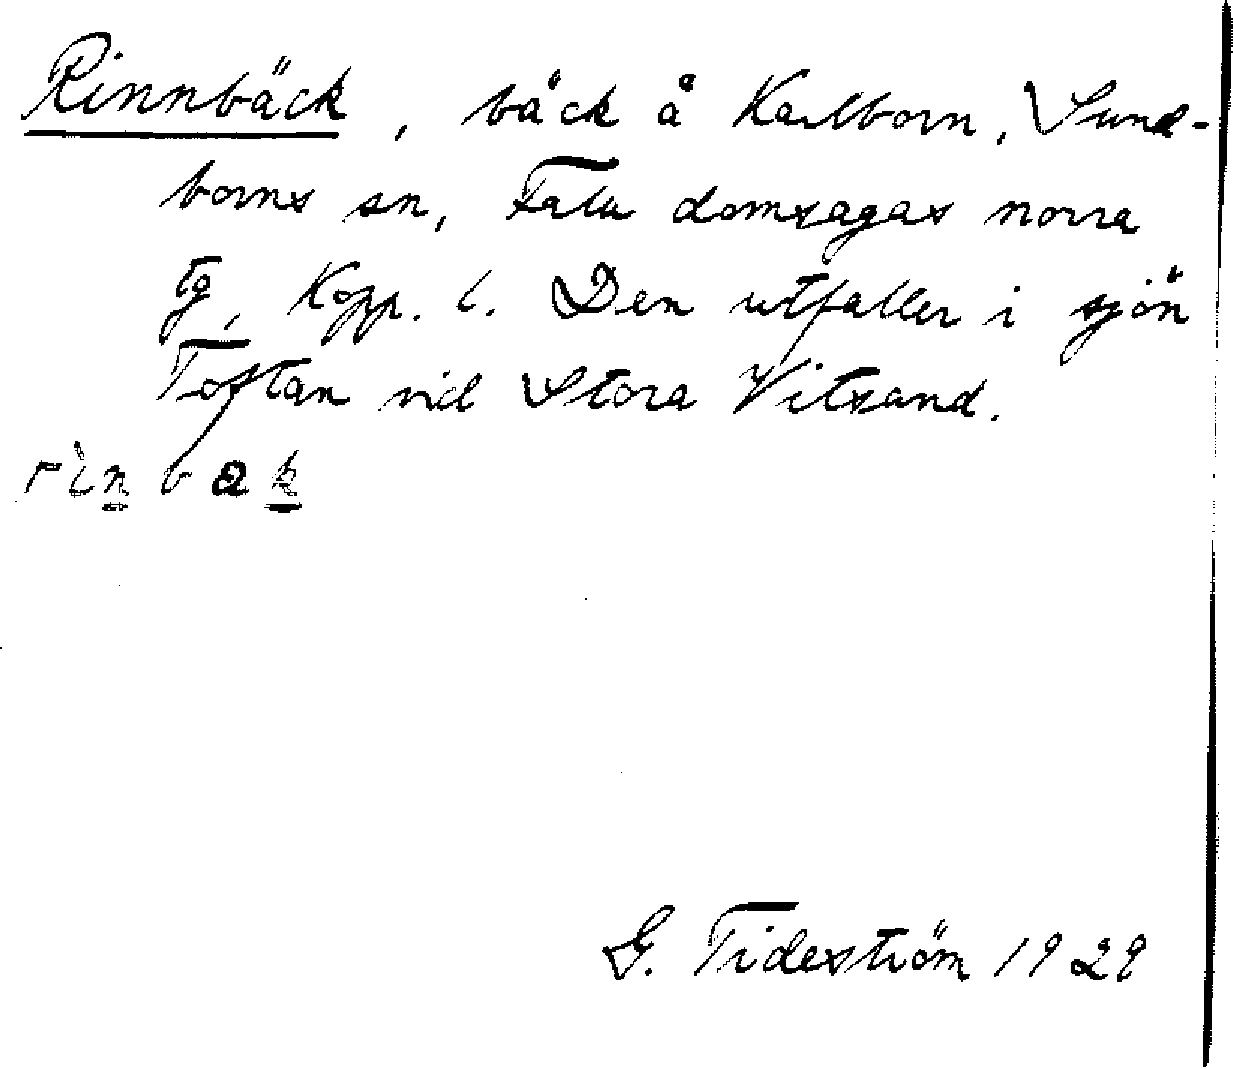 Rinnbäck, bäck å Karlborn, Sund-
borns sn, Falu domsagas norra
tg, Kopp. l. Den utfaller i sjön
Toftan vid Stora Vitsand.
rìn bak
G. Tideström 1929